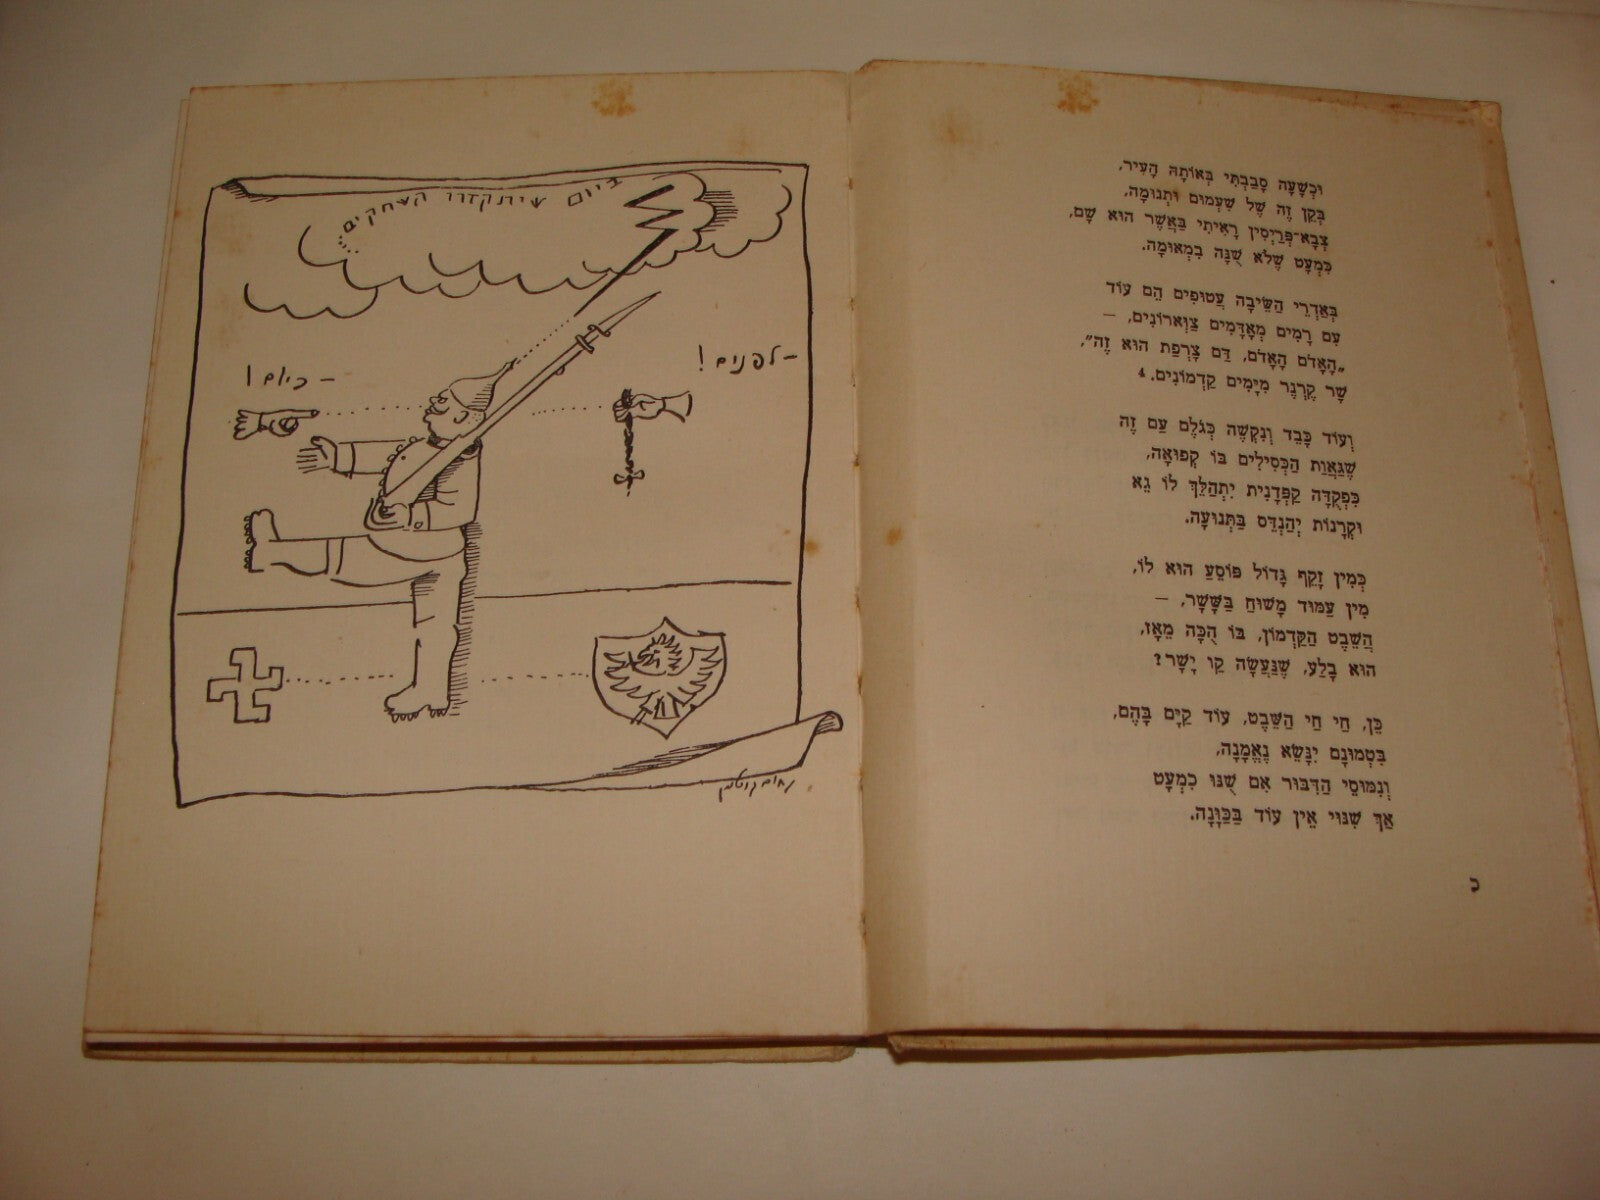 וּכְשָׁעָה סָבַבְתִּי בְּאוֹתָהּ הָעִיר,
בְּקֵן זֶה שֶׁל שִׁעְמוּם וּתְנוּמָה,
צְבָא־פְּרַיְסִין רָאִיתִי בַּאֲשֶׁר הוּא שָׁם,
כִּמְעָט שֶׁלֹּא שֻׁנָּה בִמְאוּמָה.
בְּאַדְרֵי הַשֵּׂיבָה עֲטוּפִים הֵם עוֹד
עִם רָמִים מְאָדָּמִים צַוְּארוֹנִים, –
„הָאָדֹם הָאָדֹם, דַּם צָרְפַת הוּא זֶה”,
שָׁר קֶרְנֶר מִיָּמִים קַדְמוֹנִים. 4
וְעוֹד כָּבֵד וְנִקְשֶׁה כְּגֹלֶם עַם זֶה
שֶׁגַּאֲוַת הַכְּסִילִים בּוֹ קְפוּאָה,
כִּפְקֻדָּה קַפְּדָנִית יִתְהַלֵּךְ לוֹ גֵא
וּקְרָנוֹת יְהַנְדֵּס בַּתְּנוּעָה.
כְּמִין זָקֵף גָּדוֹל פּוֹסֵעַ הוּא לוֹ,
מִין עַמּוּד מָשׁוּחַ בַּשָּׁשָׁר, –
הֲשֵׁבֶט הַקַּדְמוֹן, בּוֹ הֻכָּה מֵאָז,
הוּא בָלַע, שֶׁנַּעֲשָׂה קַו יָשָׁר?
כֵּן, חֵי חֵי הַשֵּׁבֶט, עוֹד קַיָּם בָּהֶם,
בִּטְמוּנָם יִנָּשֵׂא נֶאֱמָנָה,
וְנִמּוּסֵי הַדִּבּוּר אִם שֻׁנּוּ כִמְעָט
אַךְ שִׁנּוּי אֵין עוֹד בַּכַּוָּנָה.
כ
ביום שיתקדרו השחקים...
– לפנים!
– כיום!
נחום גוטמן